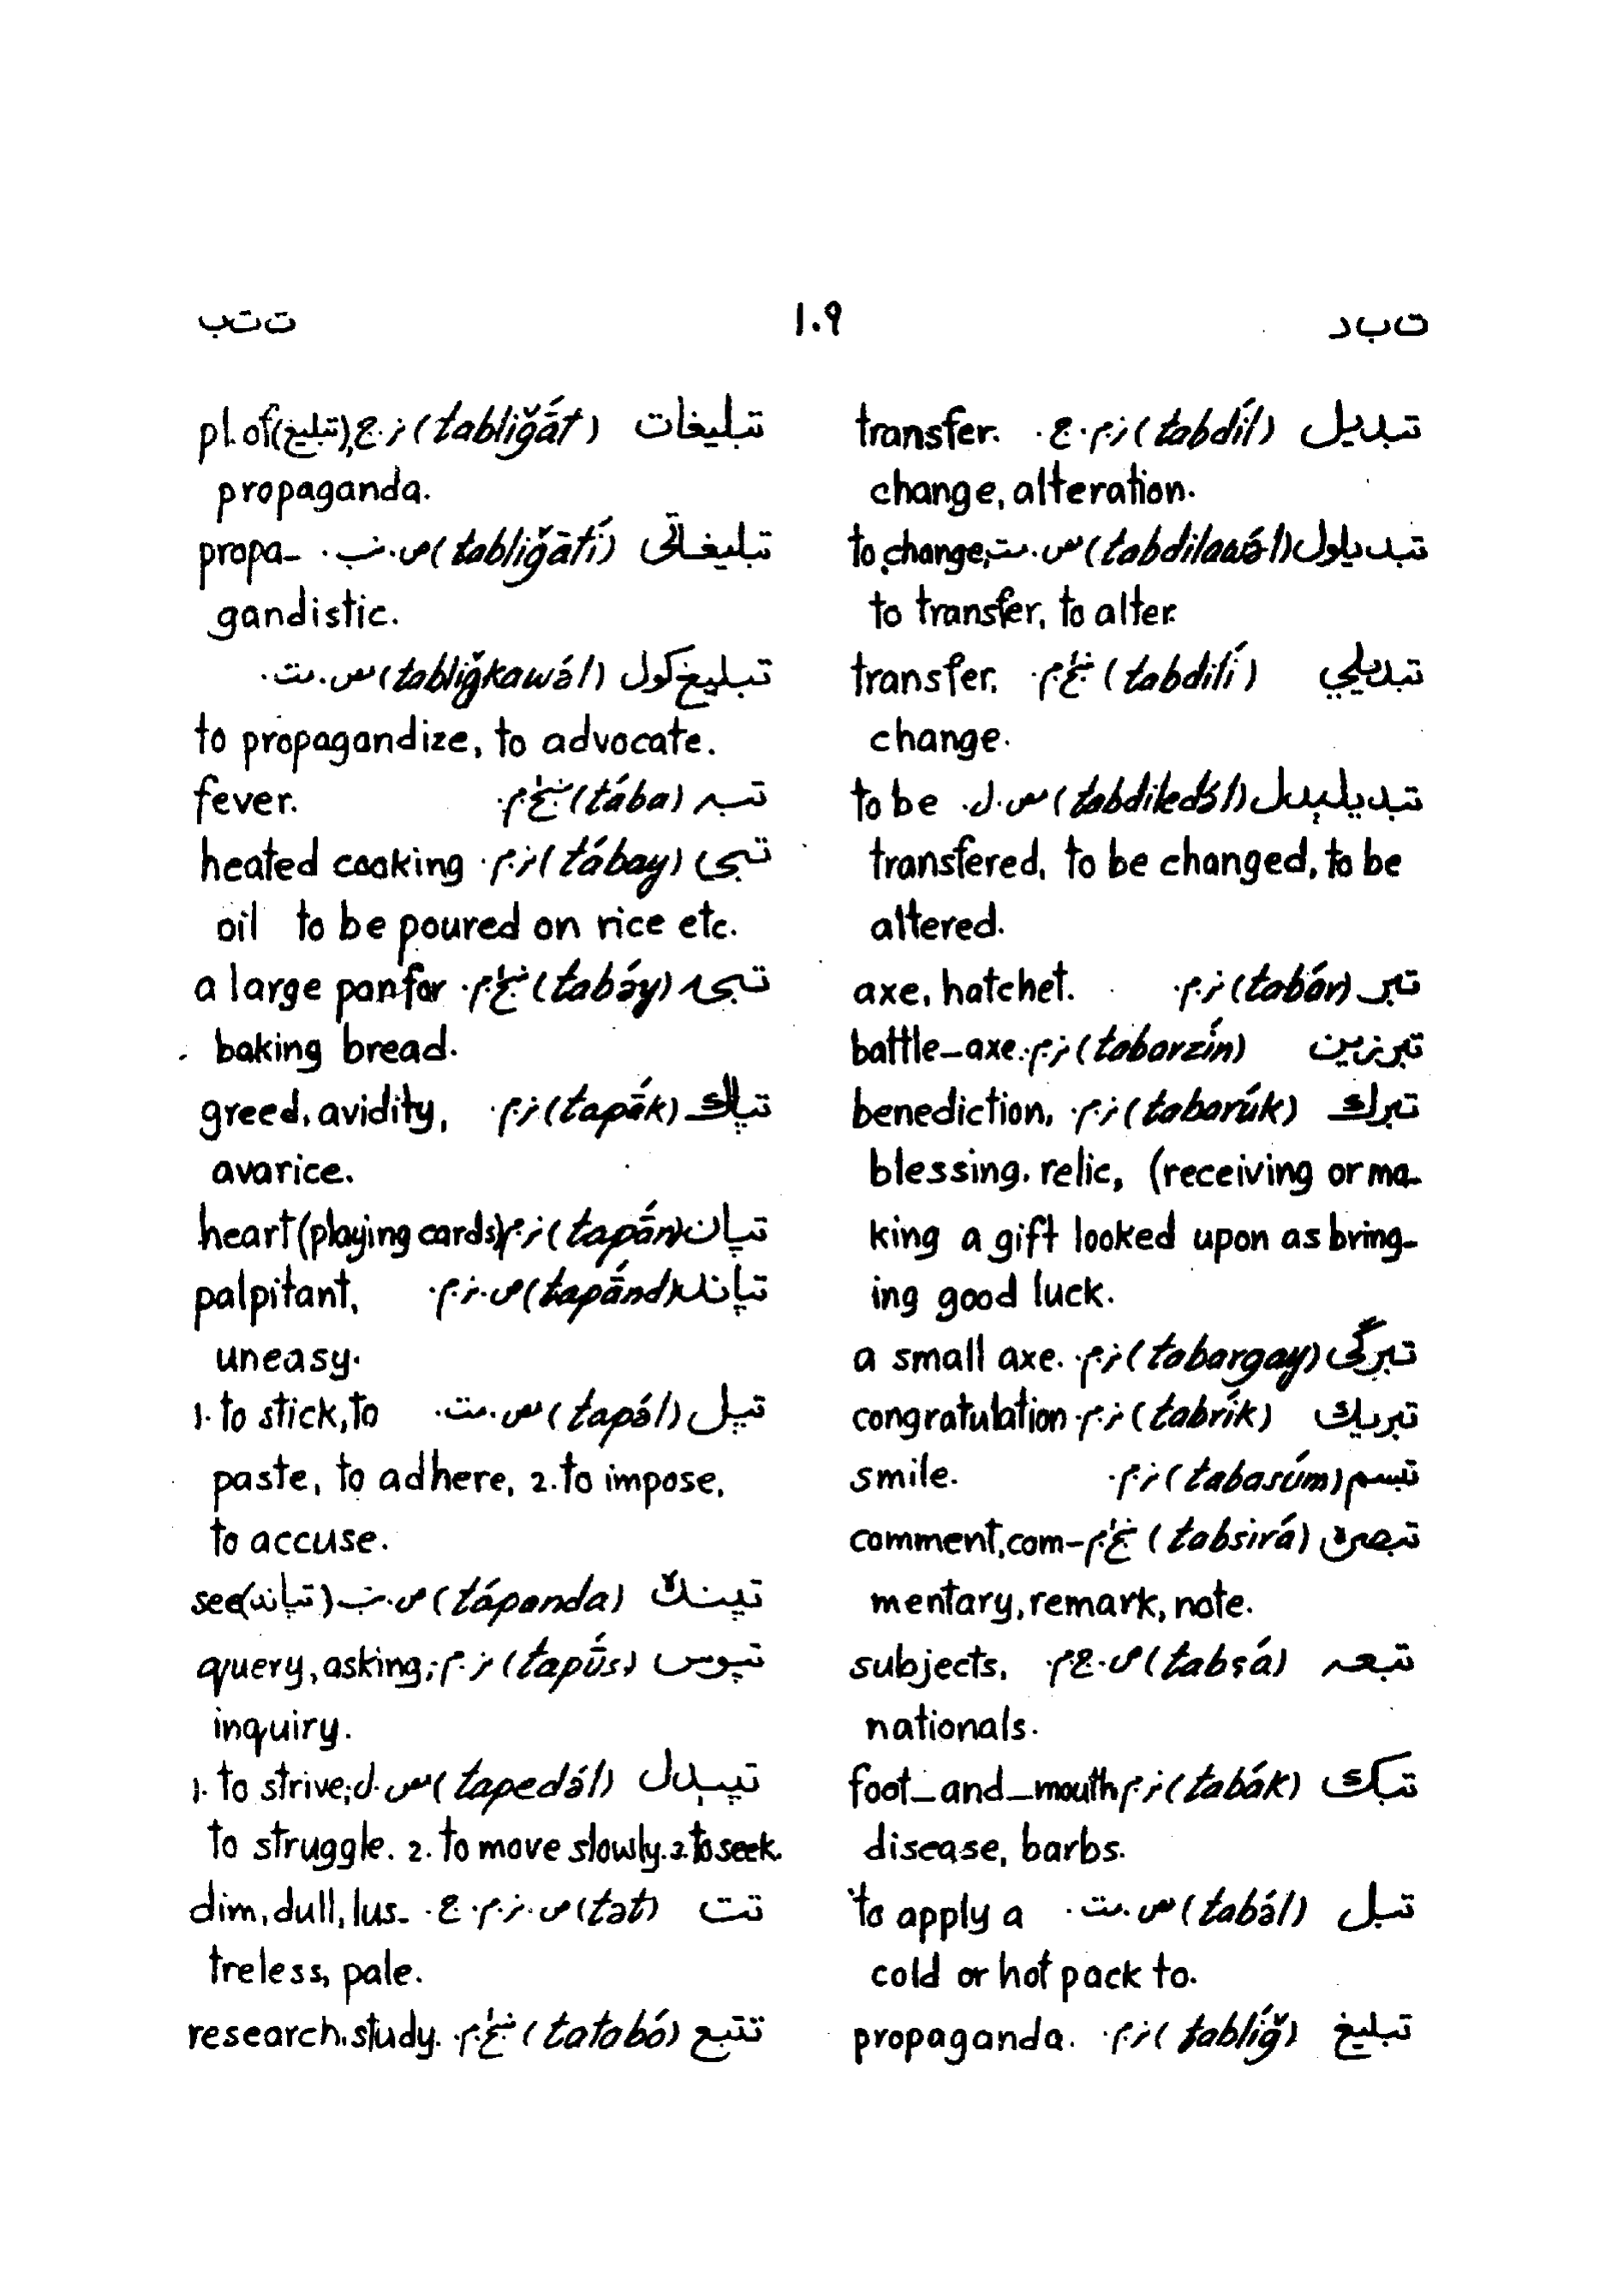 تبد ۱۰۹ تتب
تبديل (tabdíl) ز.م.ج. transfer.
change, alteration.
تبديلول (tabdilawə́l) س.مت. to change,
to transfer, to alter.
تبديلي (tabdilí) ښځ.م. transfer,
change.
تبديلېدل (tabdiledə́l) س.ل. to be
transfered, to be changed, to be
altered.
تبر (tabár) ز.م. axe, hatchet.
تبرزين (tabarzín) ز.م. battle-axe.
تبرك (tabarúk) ز.م. benediction,
blessing, relic, (receiving or ma-
king a gift looked upon as bring-
ing good luck.
تبرګی (tabargay) ز.م. a small axe.
تبريك (tabrík) ز.م. congratulation
تبسم (tabasúm) ز.م. smile.
تبصره (tabsirá) ښځ.م. comment, com-
mentary, remark, note.
تبعه (tabșá) ص.ج.م. subjects,
nationals.
تبك (tabák) ز.م. foot-and-mouth
disease, barbs.
تبل (tabə́l) س.مت. to apply a
cold or hot pack to.
تبليغ (tablíğ) ز.م. propaganda.
تبليغات (tabliğā́t) ز.ج. pl. of (تبليغ),
propaganda.
تبليغاتی (tabliğātí) ص.نب. propa-
gandistic.
تبليغ کول (tabliğkawə́l) س.مت.
to propagandize, to advocate.
تبه (tába) ښځ.م. fever.
تبی (tábay) ز.م. heated cooking
oil to be poured on rice etc.
تبۍ (tabə́y) ښځ.م. a large pan for
baking bread.
تپاك (tapā́k) ز.م. greed, avidity,
avarice.
تپان (tapā́n) ز.م. heart (playing cards)
تپاند (tapā́nd) ص.ز.م. palpitant,
uneasy.
تپل (tapə́l) س.مت. 1. to stick, to
paste, to adhere, 2. to impose,
to accuse.
تپنده (tápanda) ص.نب. see (تپاند)
تپوس (tapū́s) ز.م. query, asking;
inquiry.
تپېدل (tapedə́l) س.ل. 1. to strive;
to struggle. 2. to move slowly. 2. to seek.
تت (tət) ص.ز.م.ج. dim, dull, lus-
treless, pale.
تتبع (tatabó) ښځ.م. research, study.